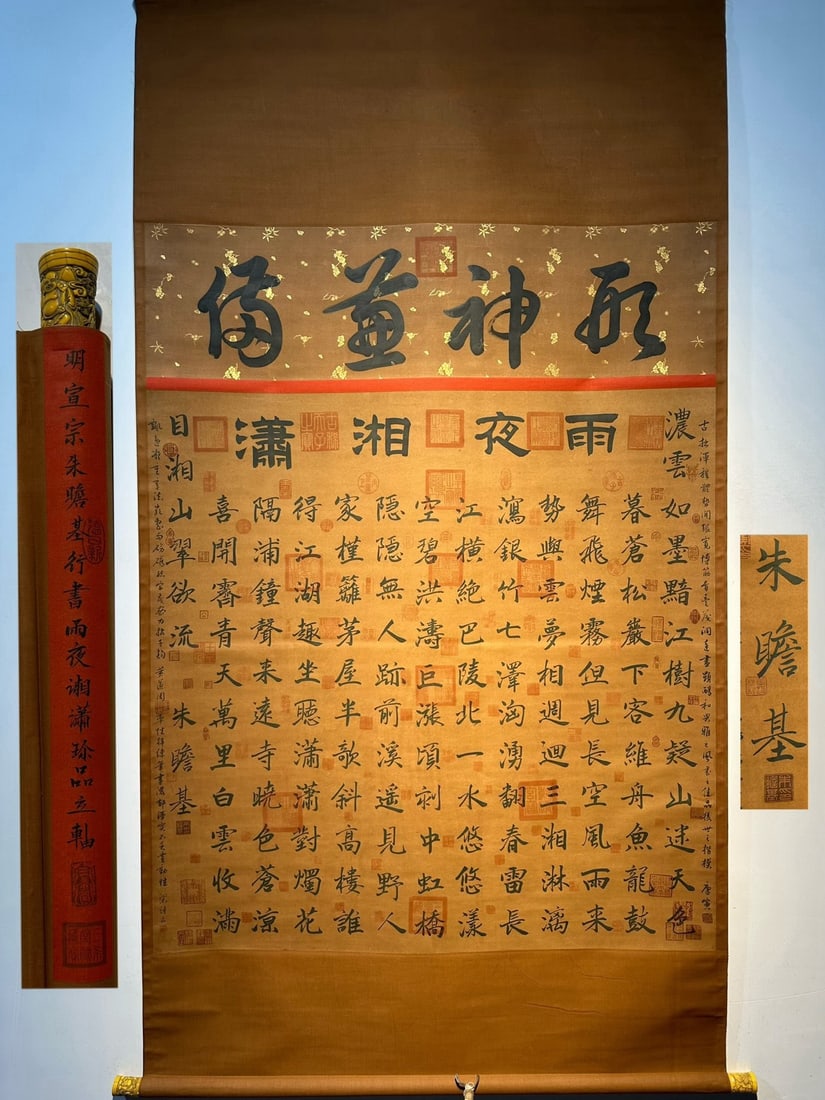 形神兼備
雨夜湘瀟
濃雲如墨黯江樹九疑山迷天色
暮蒼松嚴下客維舟魚龍鼓
舞飛煙霧但見長空風雨来
勢與雲夢相週迴三湘淋漓
瀉銀竹七澤洶湧翻春雷長
江橫絶巴陵北一水悠悠漾
空碧洪濤巨漲頃刹中虹橋
隱隱無人跡前溪遥見野人
家槿籬茅屋半歌斜高樓誰
得江湖趣坐聽瀟瀟對燭花
隔浦鐘聲来遠寺曉色蒼涼
喜開霽青天萬里白雲收滿
目湘山翠欲流 朱瞻基
古拙渾穆體勢開張寬博 唐寅
明宣宗朱瞻基行書雨夜湘瀟珎品立軸
朱瞻基